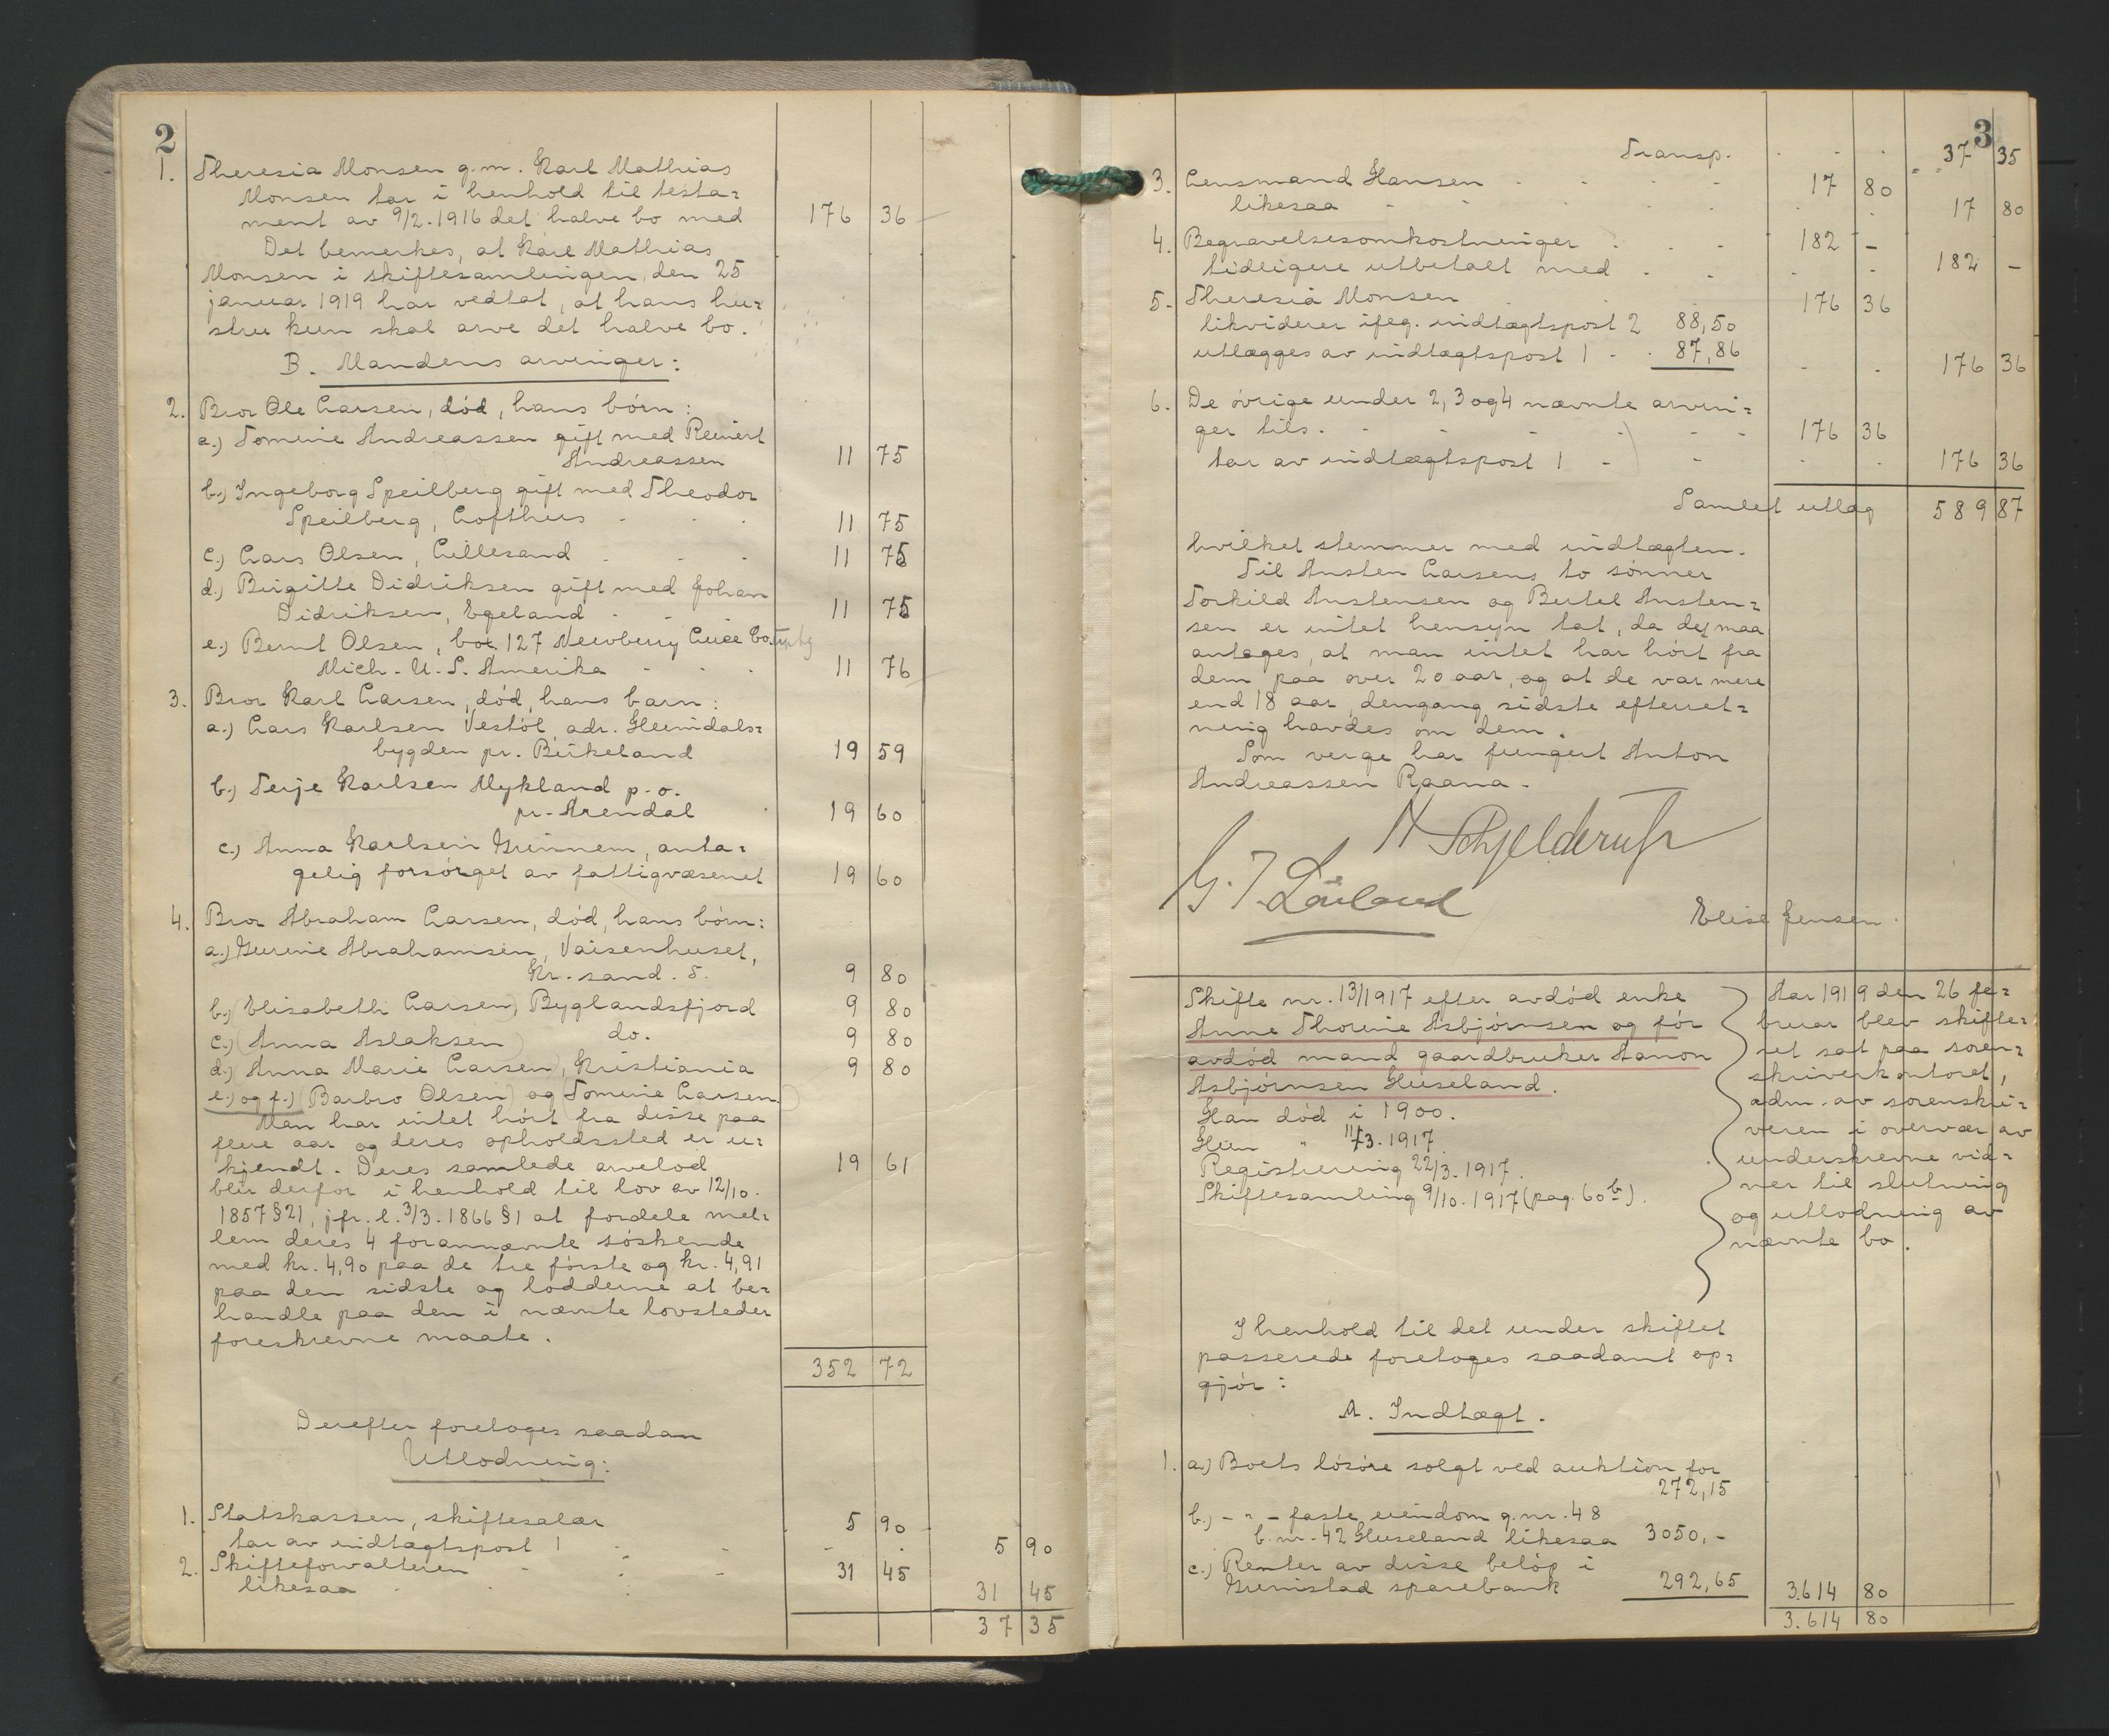 2
1. Theresia Monsen g.m. Karl Mathias
Monsen tar i henhold til testa-
ment av 9/2-1916 det halve bo med 176 36
Det bemerkes, at Karl Mathias
Monsen i skiftesamlingen den 25
januar 1919 har vedtat, at hans hu-
stru kun skal arve det halve bo.
B. Mandens arvinger:
2. Bror Ole Larsen, død, hans børn:
a.) Tomine Andreassen gift med Reinert
Andreassen 11 75
b.) Ingeborg Speilberg gift med Theodor
Speilberg, Lofthus 11 75
c.) Lars Olsen, Lillesand 11 75
d.) Birgitte Didriksen gift med Johan
Didriksen, Egeland 11 75
e.) Bernt Olsen, box 127 Newberry Luce Co.
Mich. U.S. Amerika 11 76
3. Bror Karl Larsen, død, hans barn:
a.) Lars Karlsen Vestøl, adr. Heimdals-
bygden pr. Birkeland 19 59
b.) Terje Karlsen Mykland p.o.
pr. Arendal 19 60
c.) Anna Karlsen Grinnem, anta-
gelig forsørget av fattigvæsenet 19 60
4. Bror Abraham Larsen, død, hans børn:
a.) Gurine Abrahamsen, Vaisenhuset,
Kr.sand. S. 9 80
b.) (Elisabeth Larsen) Byglandsfjord 9 80
c.) (Anna Aslaksen) do. 9 80
d.) Anna Marie Larsen), Kristiania 9 80
e.) og f.) (Barbro Olsen) og (Tomine Larsen)
Man har intet hørt fra disse paa
flere aar og deres opholdssted er u-
kjendt. Deres samlede arvelod 19 61
blir derfor i henhold til lov av 12/10.
1857 §21, jfr. l. 3/3-1866 §1 at fordele mel-
lem deres 4 forannævnte søskende
med kr. 4,90 paa de tre første og kr. 4,91
paa den sidste og lodderne at be-
handle paa den i nævnte lovsteder
foreskrevne maate.
352 72
Derefter foretoges saadan
Utlodning:
1. Statskassen, skiftesalær 5 90
tar av indtægtspost 1 5 90
2. Skifteforvalteren 31 45
likesaa 31 45
37 35
3
Transp. 37 35
3. Lensmand Hansen 17 80
likesaa 17 80
4. Begravelsesomkostninger 182 -
tidligere utbetalt med 182 -
5. Theresia Monsen 176 36
likviderer ifølg. indtægtspost 2 88,50
utlægges av indtægtspost 1 - 87,86
176 36
6. De øvrige under 2, 3 og 4 nævnte arvin-
ger tils. 176 36
tar av indtægtspost 1 - 176 36
Samlet utlæg 589 87
hvilket stemmer med indtægten.
Til Austen Larsens to sønner
Torkild Austensen og Bertel Austen-
sen er intet hensyn tat, da det maa
antages, at man intet har hørt fra
dem paa over 20 aar, og at de var mere
end 18 aar, dengang sidste efterret-
ning havdes om dem.
Som verge har fungert Anton
Andreassen Raana.
H Schjelderup
G. T. Løiland
Elise Jensen.
Skifte nr. 13/1917 efter avdød enke
Anne Thorine Asbjørnsen og før
avdød mand gaardbruker Aanon
Asbjørnsen Huseland.
Han død i 1900.
Hun " 11/3. 1917.
Registrering 22/3. 1917.
Skiftesamling 9/10. 1917 (pag. 60 b).
Aar 1919 den 26 fe-
bruar blev skifte-
ret sat paa soren-
skriverkontoret,
adm. av sorenskri-
veren i overvær av
underskrevne vid-
ner til slutning
og utlodning av
nævnte bo.
I henhold til det under skiftet
passerede foretoges saadant op-
gjør:
A. Indtægt.
1. a.) Boets løsøre solgt ved auktion for
272,15
b.) - " - faste eiendom g.nr. 48
b.nr. 42 Huseland likesaa 3050,-
c.) Renter av disse beløp i
Grimstad sparebank 292,65 3.614 80
3.614 80